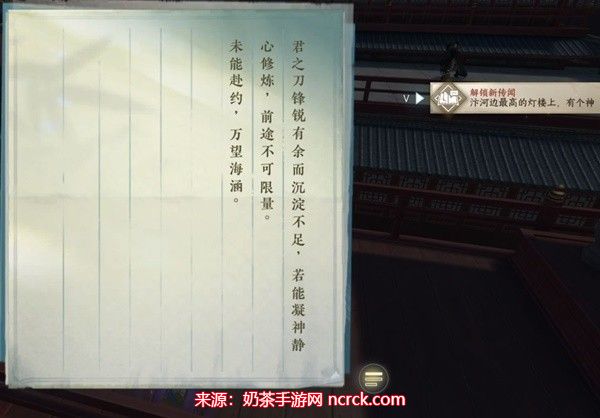 君之刀锋锐有余而沉淀不足，若能凝神静
心修炼，前途不可限量。
未能赴约，万望海涵。
解锁新传闻
V
汴河边最高的灯楼上，有个神
来源：奶茶手游网 ncrck.com